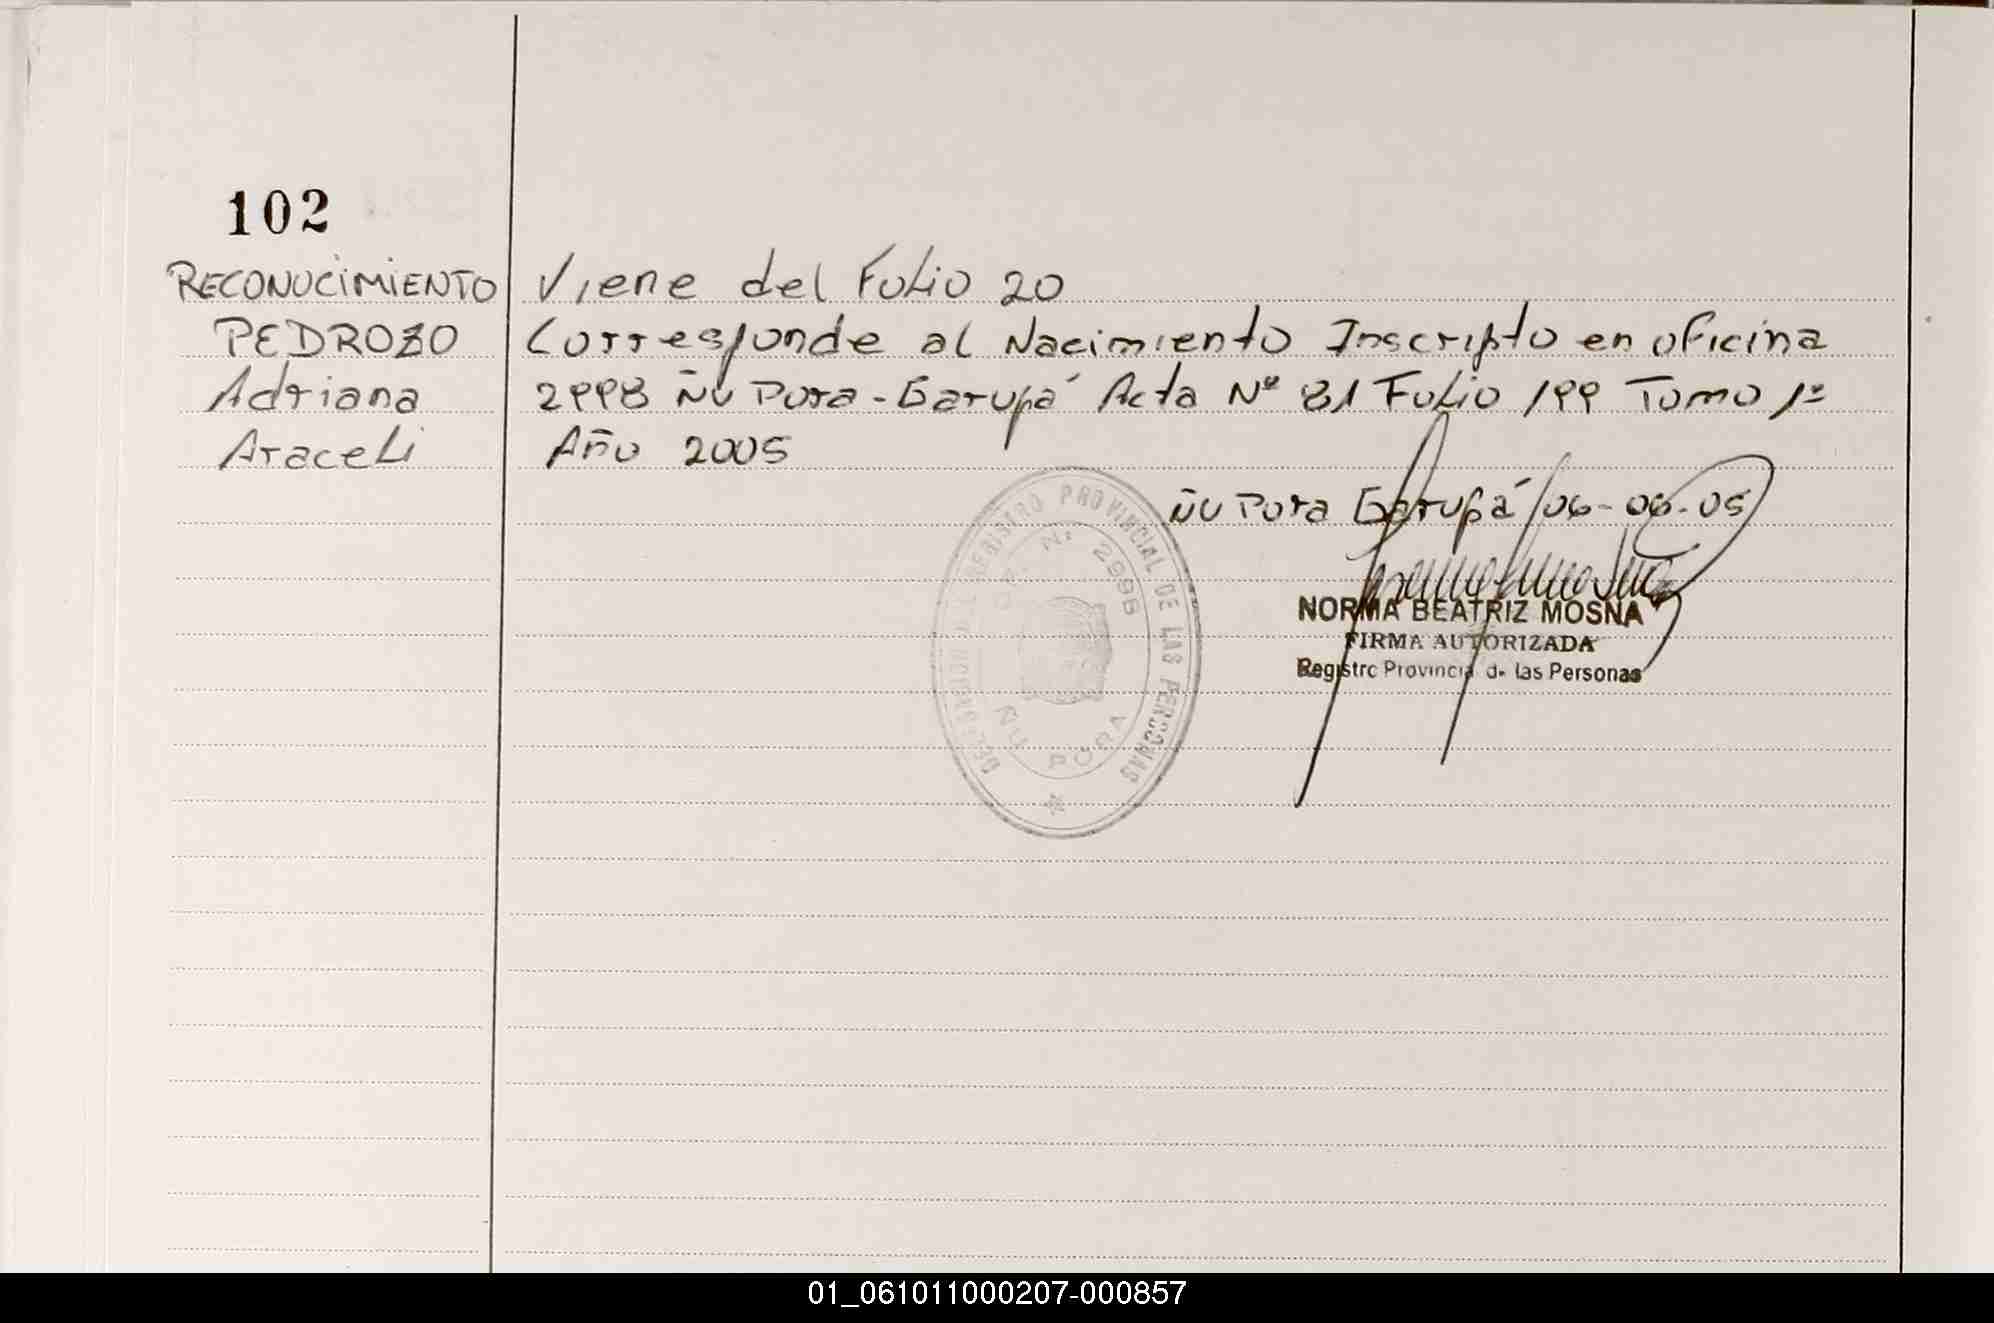 102
RECONOCIMIENTO
PEDROZO
Adriana
Araceli
Viene del Folio 20
Corresponde al Nacimiento Inscripto en oficina
2998 Ñu Pora - Garupá Acta Nº 81 Folio 199 Tomo 1º
Año 2005
Ñu Pora Garupá 06-06-05
NORMA BEATRIZ MOSNA
FIRMA AUTORIZADA
Registro Provincia de las Personas
REGISTRO PROVINCIAL DE LAS PERSONAS
Nº 2998
ÑU PORA
01_061011000207-000857